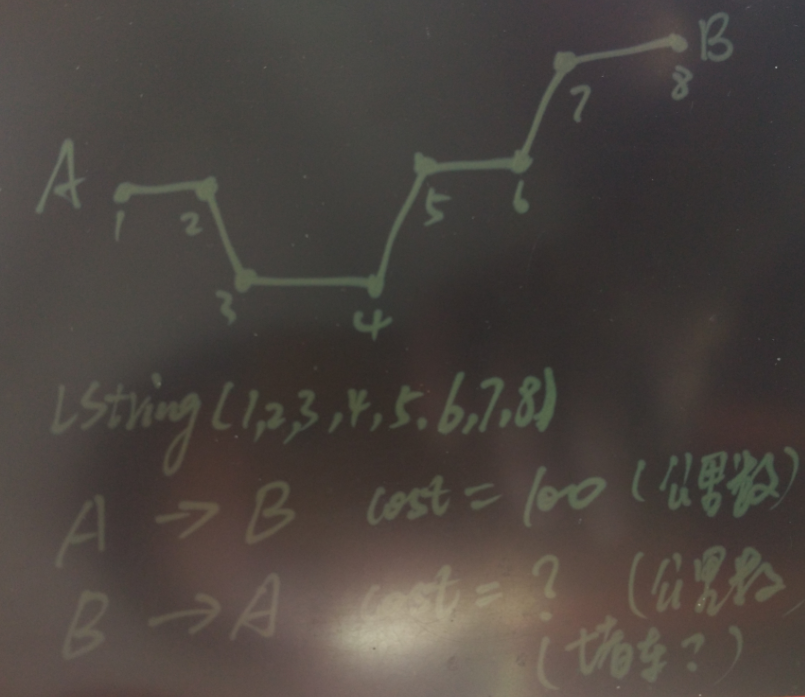 A
B
1
2
3
4
5
6
7
8
LString(1,2,3,4,5,6,7,8)
A → B cost = 100 (公里数)
B → A cost = ? (公里数
(堵车?)